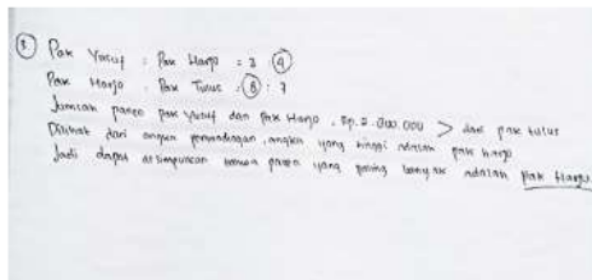 ③ Pak Yusuf : Pak Harjo = 3 ④
Pak Harjo : Pak Tulus = ⑧ : 7
Jumlah panen pak Yusuf dan Pak Harjo . Rp. 2.800.000 > dari pak tulus
Dilihat dari angka perbandingan , angka yang tinggi adalah pak harjo
Jadi dapat disimpulkan bahwa panen yang paling banyak adalah Pak Harjo